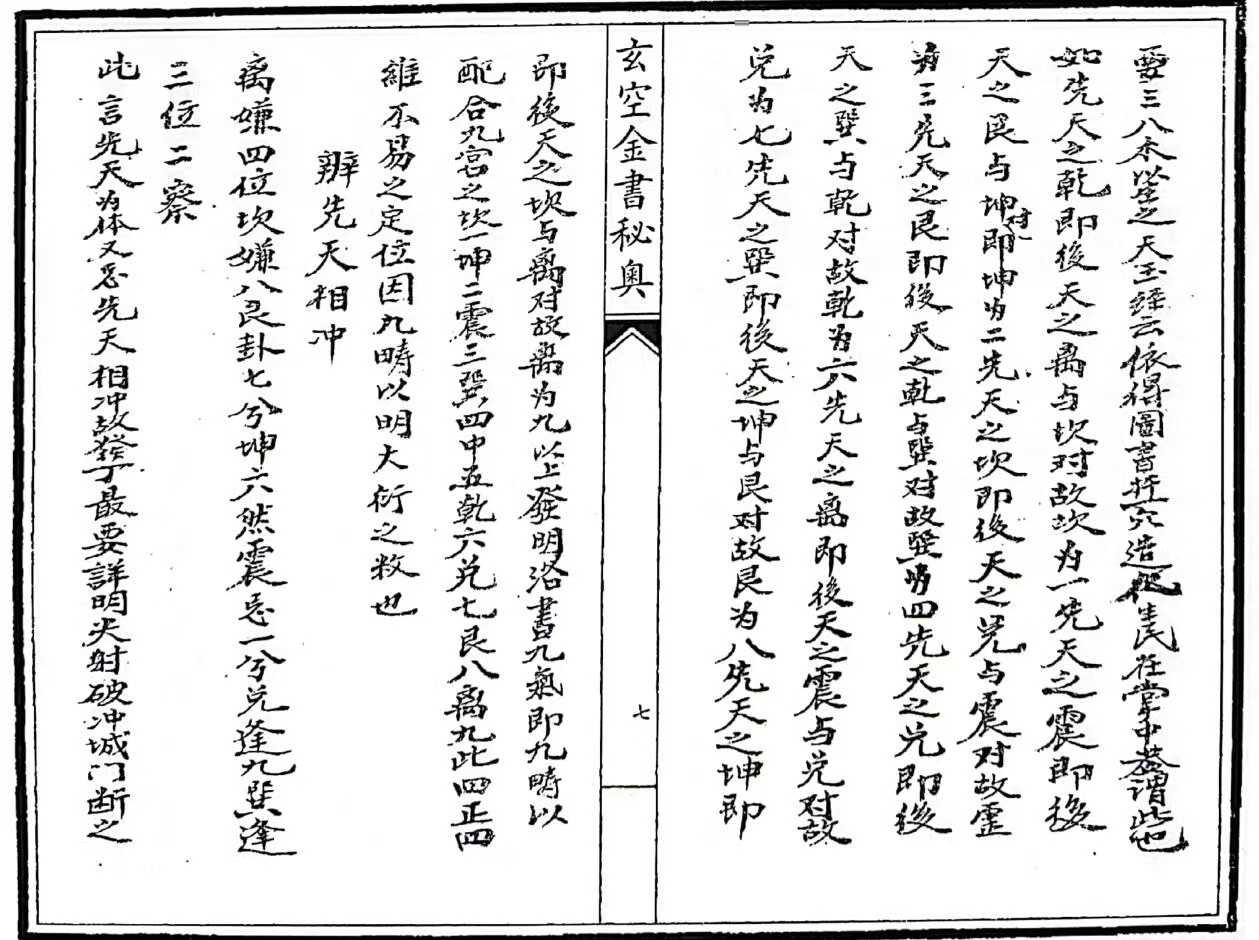 要三八木以坐之天玉經云依得圖書扦穴造化生民在掌中葢謂此也
如先天之乾即後天之离与坎对故坎为一先天之震即後
天之艮与坤对即坤为二先天之坎即後天之兑与震对故震
为三先天之艮即後天之乾与巽对故巽为四先天之兑即後
天之巽与乾对故乾为六先天之离即後天之震与兑对故
兑为七先天之巽即後天之坤与艮对故艮为八先天之坤即
玄空金書秘奥
七
即後天之坎与离对故离为九以上發明洛書九氣即九畴以
配合九宮之坎一坤二震三巽四中五乾六兑七艮八离九此四正四
維不易之定位因九畴以明大衍之数也
辨先天相冲
离嫌四位坎嫌八艮卦七兮坤六然震忌一兮兑逢九巽逢
三位二察
此言先天为体又忌先天相冲故發丁最要詳明尖射破冲城门断之